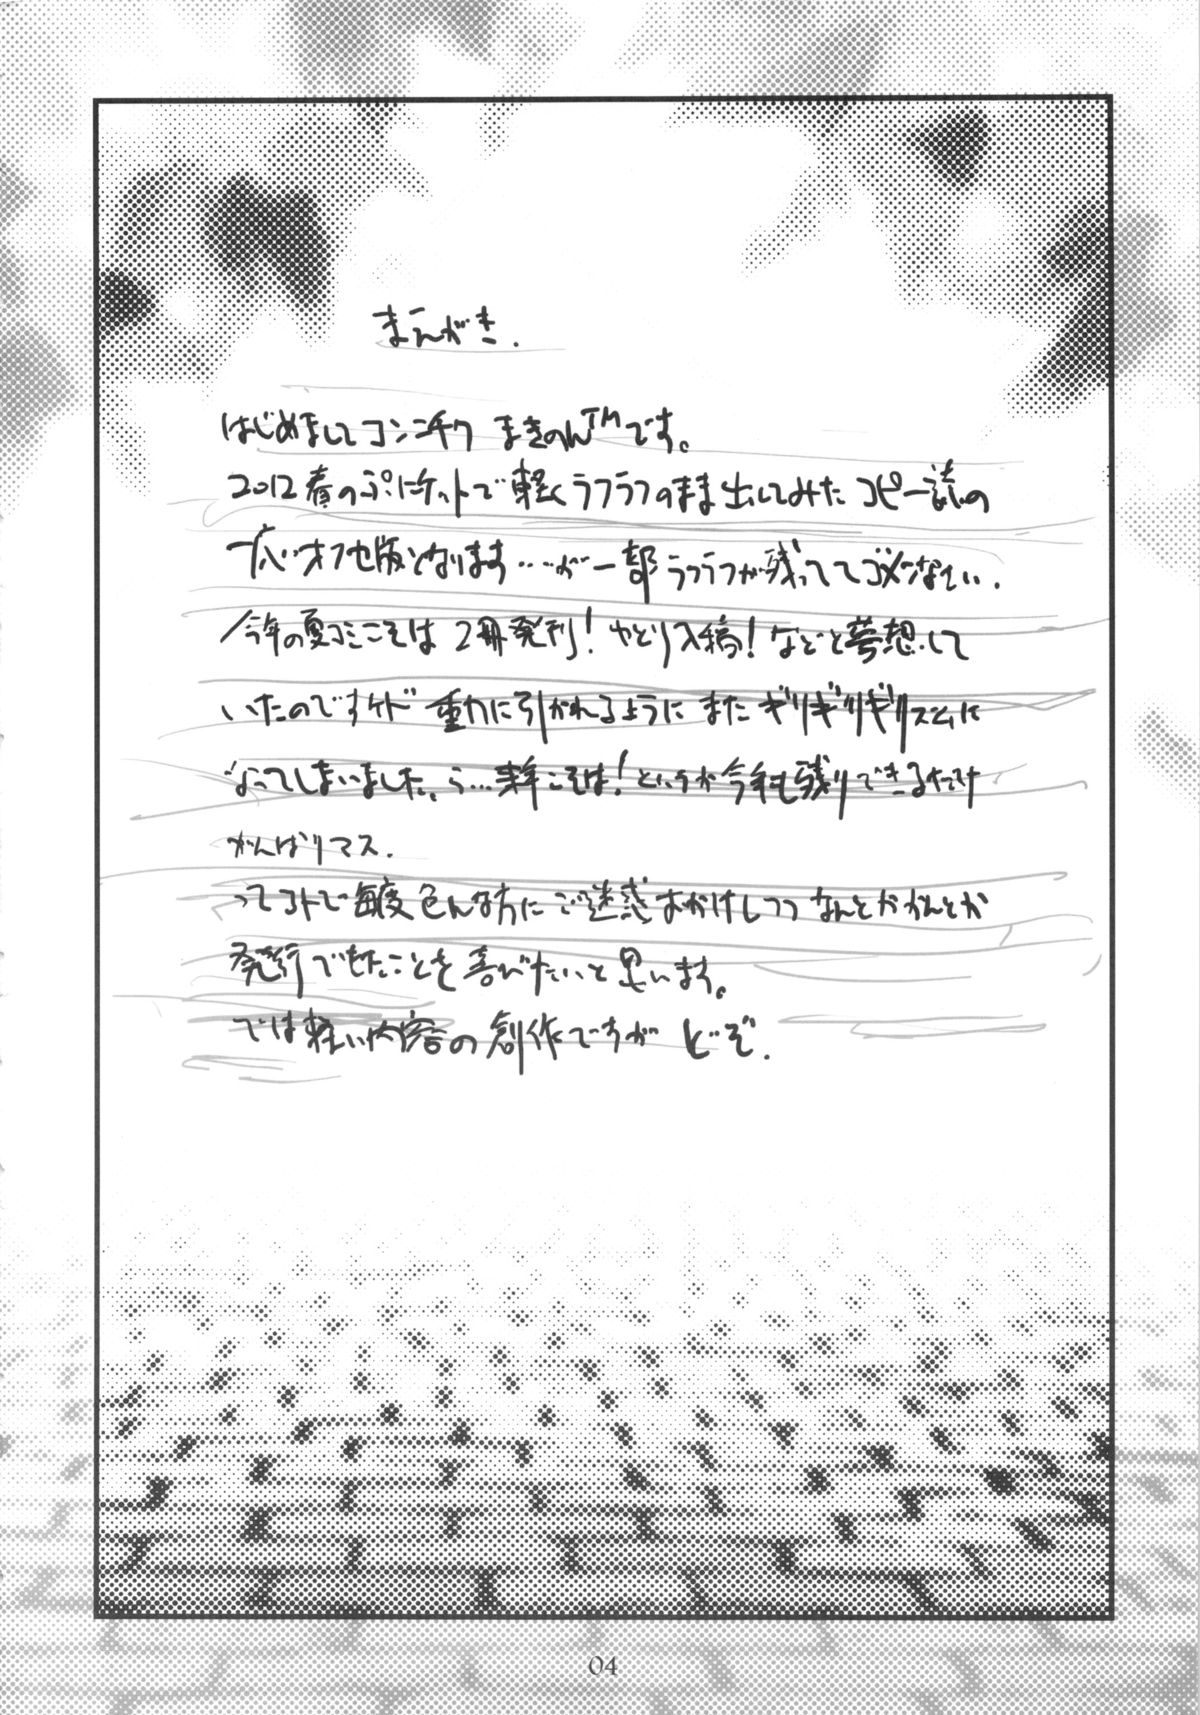 まえがき.
はじめましてコンニチワ まきのんTMです。
2012春のぷにケットで軽くラフラフのまま出してみた コピー誌の
オフセ版となります……が一部ラフラフが残っててゴメンなさい.
今年の夏コミこそは 2冊発刊! やとり入稿! などと夢想して
いたのですケド 重力に引かれるように また ギリギリギリズムに
なってしまいました。ら…来年こそは! というか今年も残りできるだけ
がんばりマス.
ってコトで毎度色んな方に ご迷惑おかけしつつ なんとかかんとか
発行できたことを喜びたいと思います。
では軽い内容の創作ですが どぞ.
04